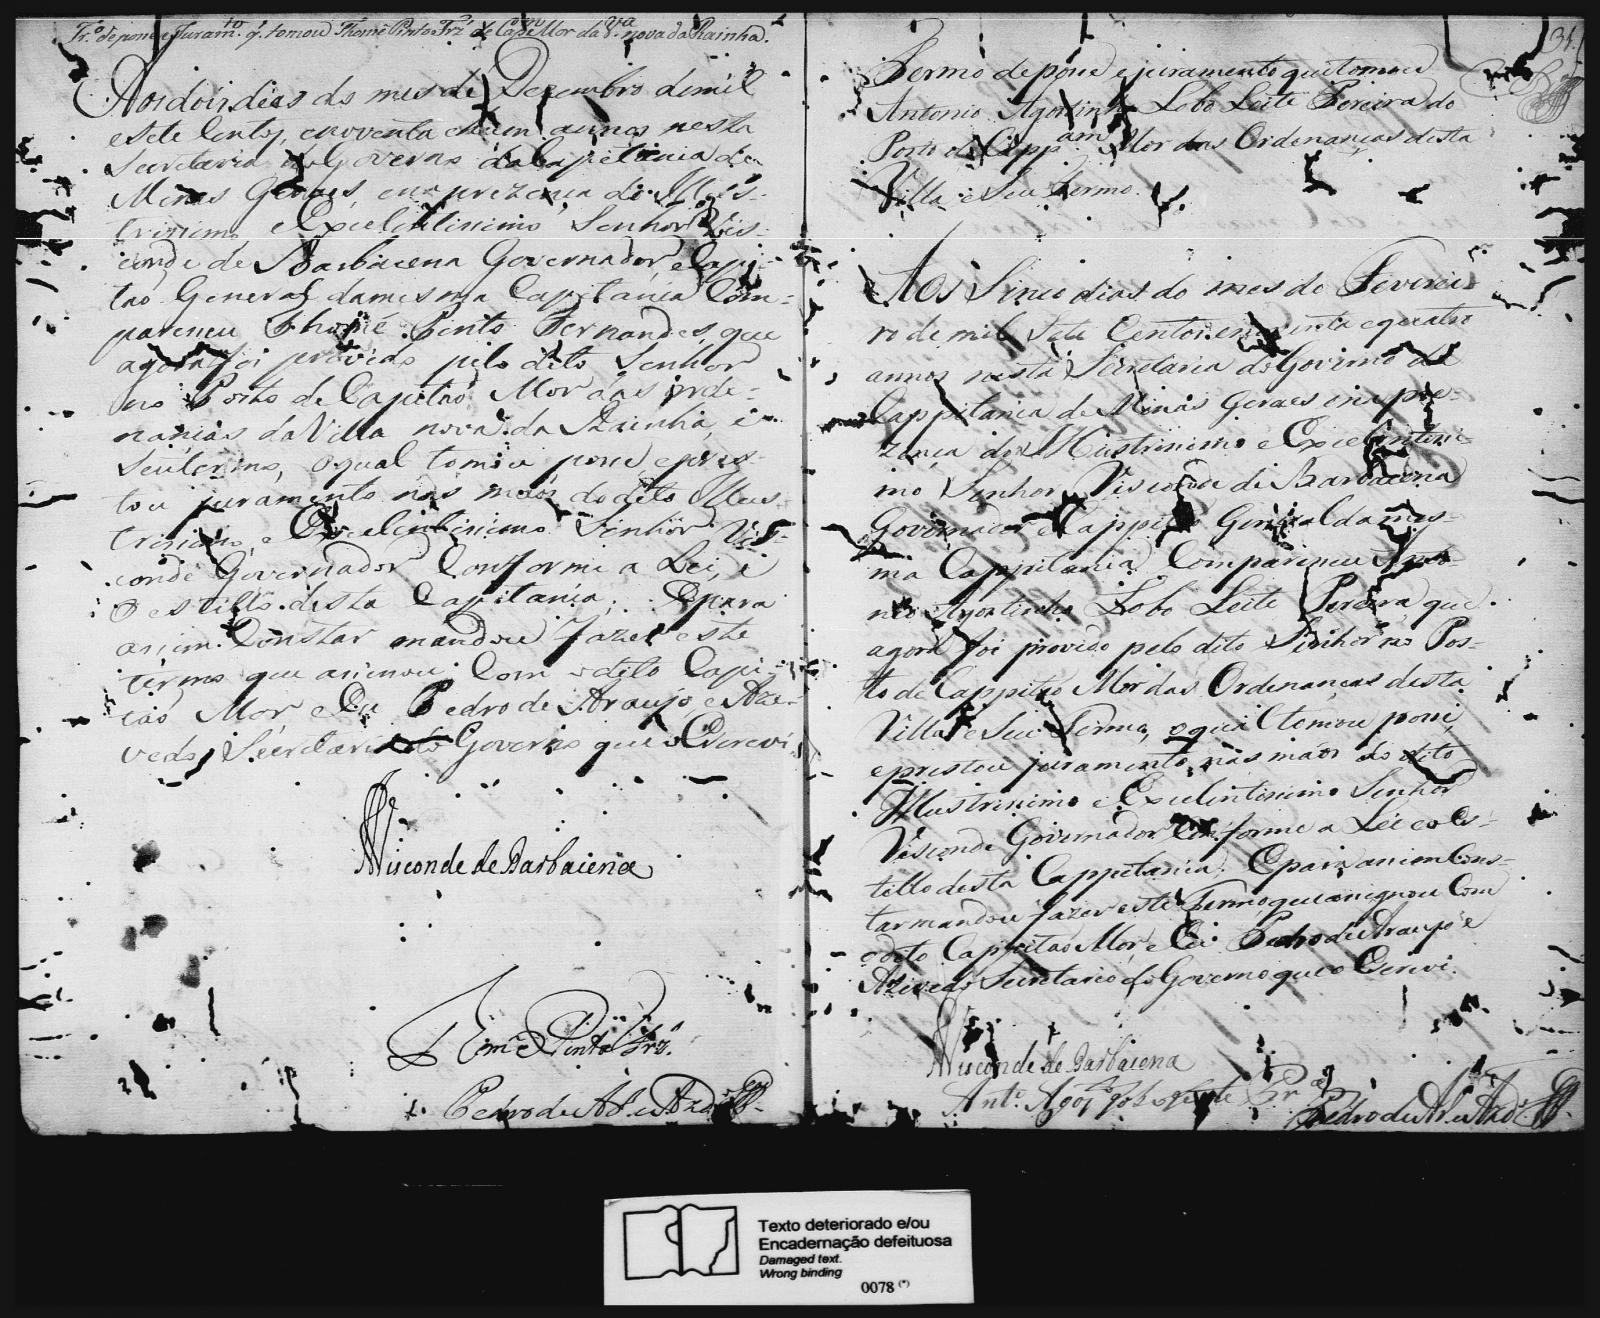 Tr.º de poce e Juram.to q. tomou Thomé Pinto Frz' de Cap.m Mor da V.a nova da Rainha.
Aos dois dias do mes de Dezembro de mil
e sete Centos, e noventa e hum annos nesta
Secretaria do Governo da Capitania de
Minas Geraes, e na prezença do Illus-
trissimo e Excelentissimo Senhor Vis-
conde de Barbacena Governador, e Capi-
tão General da mesma Capitania Com-
pareceu Thomé Pinto Fernandes, que
agora foi provido pelo dito Senhor
no Posto de Capitão Mor das orde-
nanças da Villa nova da Rainha, e
seu termo, o qual tomou posse e pres-
tou juramento nas maõs do dito Illus-
trissimo, e Excelentissimo Senhor Vis-
conde Governador Conforme a Lei, e
o estillo desta Capitania; E para
assim Constar mandou fazer este
termo que assinou Com o dito Capi-
tão Mor, e Eu Pedro de Araujo e Aze-
vedo, Secretario do Governo que o Escrevi.
Visconde de Barbacena
Thomé Pinto Frz.
Pedro de Ar.º e Azd.º
34.
Termo de posse e juramento que tomou
Antonio Agostinho Lobo Leite Pereira do
Posto de Capp.am Mor das Ordenanças desta
Villa e Seu Termo.
Aos Sinco dias do mes de Feverei-
ro de mil Sete Centos e noventa e quatro
annos nesta Secretaria do Governo da
Cappitania de Minas Geraes e na pre-
zença do Illustrissimo e Excelentissi-
mo Senhor Visconde de Barbacena
Governador e Cappitão General da mes-
ma Cappitania Compareceu Anto-
nio Agostinho Lobo Leite Pereira que
agora foi provido pelo dito Senhor no Pos-
to de Cappitão Mor das Ordenanças desta
Villa e Seu Termo, o qual tomou posse,
e prestou juramento nas maõs do dito
Illustrissimo e Excelentissimo Senhor
Visconde Governador Conforme a Lei e o Es-
tillo desta Cappitania. E para assim Cons-
tar mandou fazer este Termo que assignou Com
o dito Cappitão Mor, e Eu Pedro de Araujo e
Azevedo Secretario do Governo que o Escrevi.
Visconde de Barbacena
Ant.º Agos.º Lobo Leite Pr.a
Pedro de Ar.º e Azd.º
Texto deteriorado e/ou
Encadernação defeituosa
Damaged text.
Wrong binding
0078 (*)